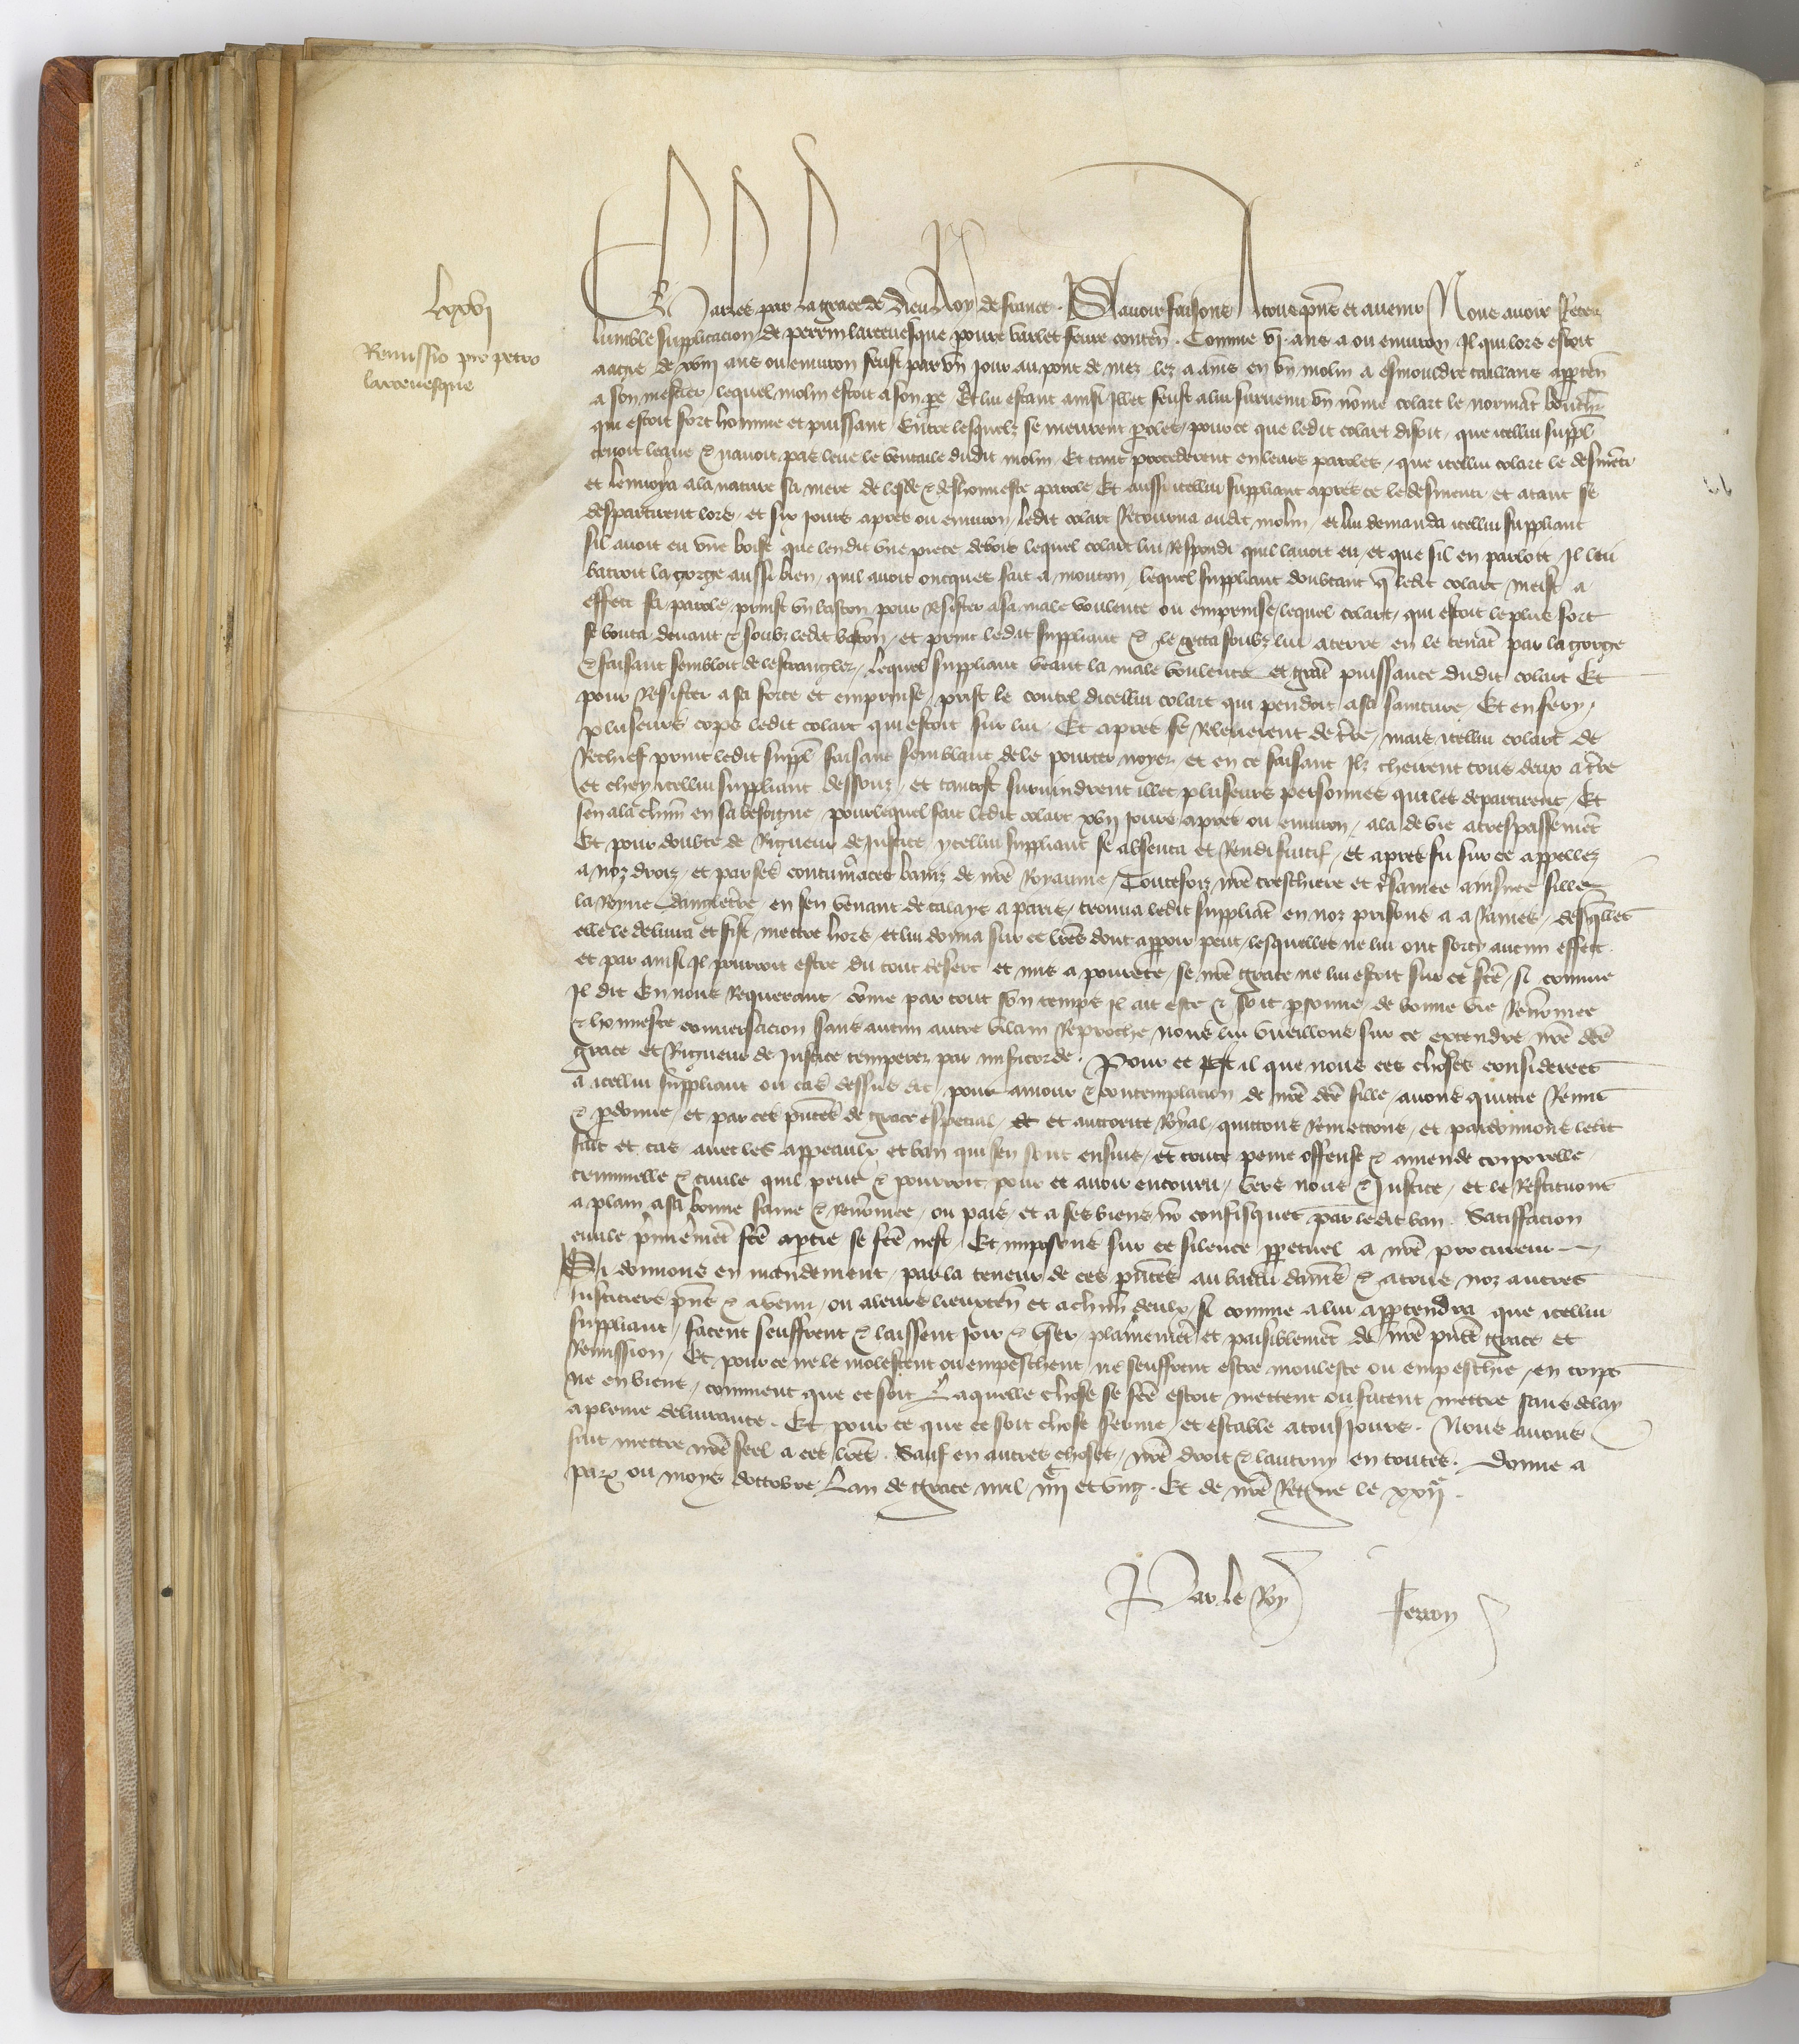 lxxvi
Remissio pro petro
larcevesque
Charles par la grace de Dieu Roy de france. Savoir faisons A tous pns et avenir Nous avoir Receu
lumble supplicacion de perrin larcevesque povre varlet fevre conten. Comme vi. ans a ou environ Il qui lors estoit
aagie de xviii ans ou environ feust par un Jour au pont de mez lez amiens en un molin a esmouldre taillans apparten
a son mestier, lequel molin estoit a son pere Et lui estant ainsi illec feust a lui survenu un nomme colart le normant bouchr
qui estoit fort homme et puissant Entre lesquelz se meurent paroles, pource que ledit colart disoit, que icellui suppl
tenoit leaue et navoit pas leve le ventaile dudit molin Et tant procederent en leurs paroles, que icellui colart le desmenti
et lenvoya a la nature sa mere de laide et deshonneste parole Et aussi icellui suppliant apres ce le desmenti et atant se
despartirent lors, et six jours apres ou environ, ledit colart Retourna audit molin, et lui demanda icellui suppliant
sil avoit eu une boise que lendit une piece de bois lequel colart lui Respondi quil lavoit eu, et que sil en parloit Il lui
batroit la gorge aussi bien, quil avoit oncques fait a mouton, lequel suppliant doubtant q ledit colart meist a
effect sa parole, prinst un baston pour Resister a sa male voulente ou emprinse, lequel colart, qui estoit le plus fort
se bouta devant et soubz ledit baston, et print ledit suppliant et le getta soubz lui a terre en le tenant par la gorge
et faisant semblant de lestrangler, Lequel suppliant veant la male voulente et grant puissance dudit colart Et
pour Resister a sa force et emprinse, prist le coutel dicellui colart qui pendoit a sa sainture, Et en fery,
pluseurs cops ledit colart qui estoit sur lui. Et apres se Releverent de tre, mais icellui colart de
Rechief print ledit suppl faisant semblant de le pourter noyer, et en ce faisant Ilz cheirent tous deux a tre
et chey icellui suppliant dessouz, et tantost survindrent illec pluseurs personnes qui les departirent, Et
sen ala chun en sa besoigne, pour lequel fait ledit colart xvii jours apres ou environ, ala de vie a trespassement
Et pour doubte de Rigueur de Justice ycellui suppliant se absenta et Rendi fuitif, et apres fu sur ce appellez
a noz drois, et par ses contumaces baniz de nre Royaume, Toutesfoiz nre treschiere et tsamee ainsnee fille
la Royne dangleterre en sen venant de calays a paris, trouva ledit suppliant en noz prisons a amiens, desquelles
elle le delivra et fist mettre hors, et lui donna sur ce lres dont apparoir peut, lesquelles ne lui ont sorty aucun effect
et par ainsi Il pourroit estre du tout desert et mis a pourete, se nre grace ne lui estoit sur ce fce, si comme
Il dit En nous Requerant, comme par tout son temps il ait este et soit psonne de bonne vie Renomee
et honneste conversacion sans aucun autre vilain Reproche, nous lui vueillons sur ce extendre nre dce
grace et Rigueur de Justice temperer par misericorde. Pour ce est il que nous ces choses considerees
a icellui suppliant ou cas dessus dit, pour amour et contemplacion de nre dce fille, avons quittie Remis
et pdonne, et par ces pntes de grace especial, et et auctorite Royal, quittons Remettons, et pardonnons ledit
fait et cas avec les appeaulx et ban qui sen sont ensuis, et toute peine offense et amende corporelle,
criminelle et civile quil peut et pourroit pour ce avoir encouru, vers nous et Justice, et le Restituons
a plain a sa bonne fame et Renomee, ou pais, et a ses biens no confisquez par ledit ban. Satisfacion
civile prmierement fce a partie se fce nest, Et imposons sur ce silence ppetuel a nre procureur
Si donnons en mandement, par la teneur de ces pntes au bailli damiens et a tous noz autres
Justiciers pns et avenir, ou a leurs lieuxten et a chun deulx, si comme a lui appartendra que icellui
suppliant, facent seuffrent et laissent joir et user, plainement et paisiblement de nre pnte grace et
Remission, Et, pour ce ne le molestent ou empeschent, ne seuffrent estre moleste ou empeschie, en corps
ne en biens, comment que ce soit Laquelle chose se fce estoit mettent ou facent mettre sans delay
a pleine delivrance. Et pour ce que ce soit chose ferme, et estable a tousjours. Nous avons
fait mettre nre seel a ces lres. Sauf en autres choses, nre droit et lautruy en toutes. Donne a
paris ou moys doctobre Lan de grace mil iiiic et ung. Et de nre Regne le xxiie.
Par le Roy Ferron